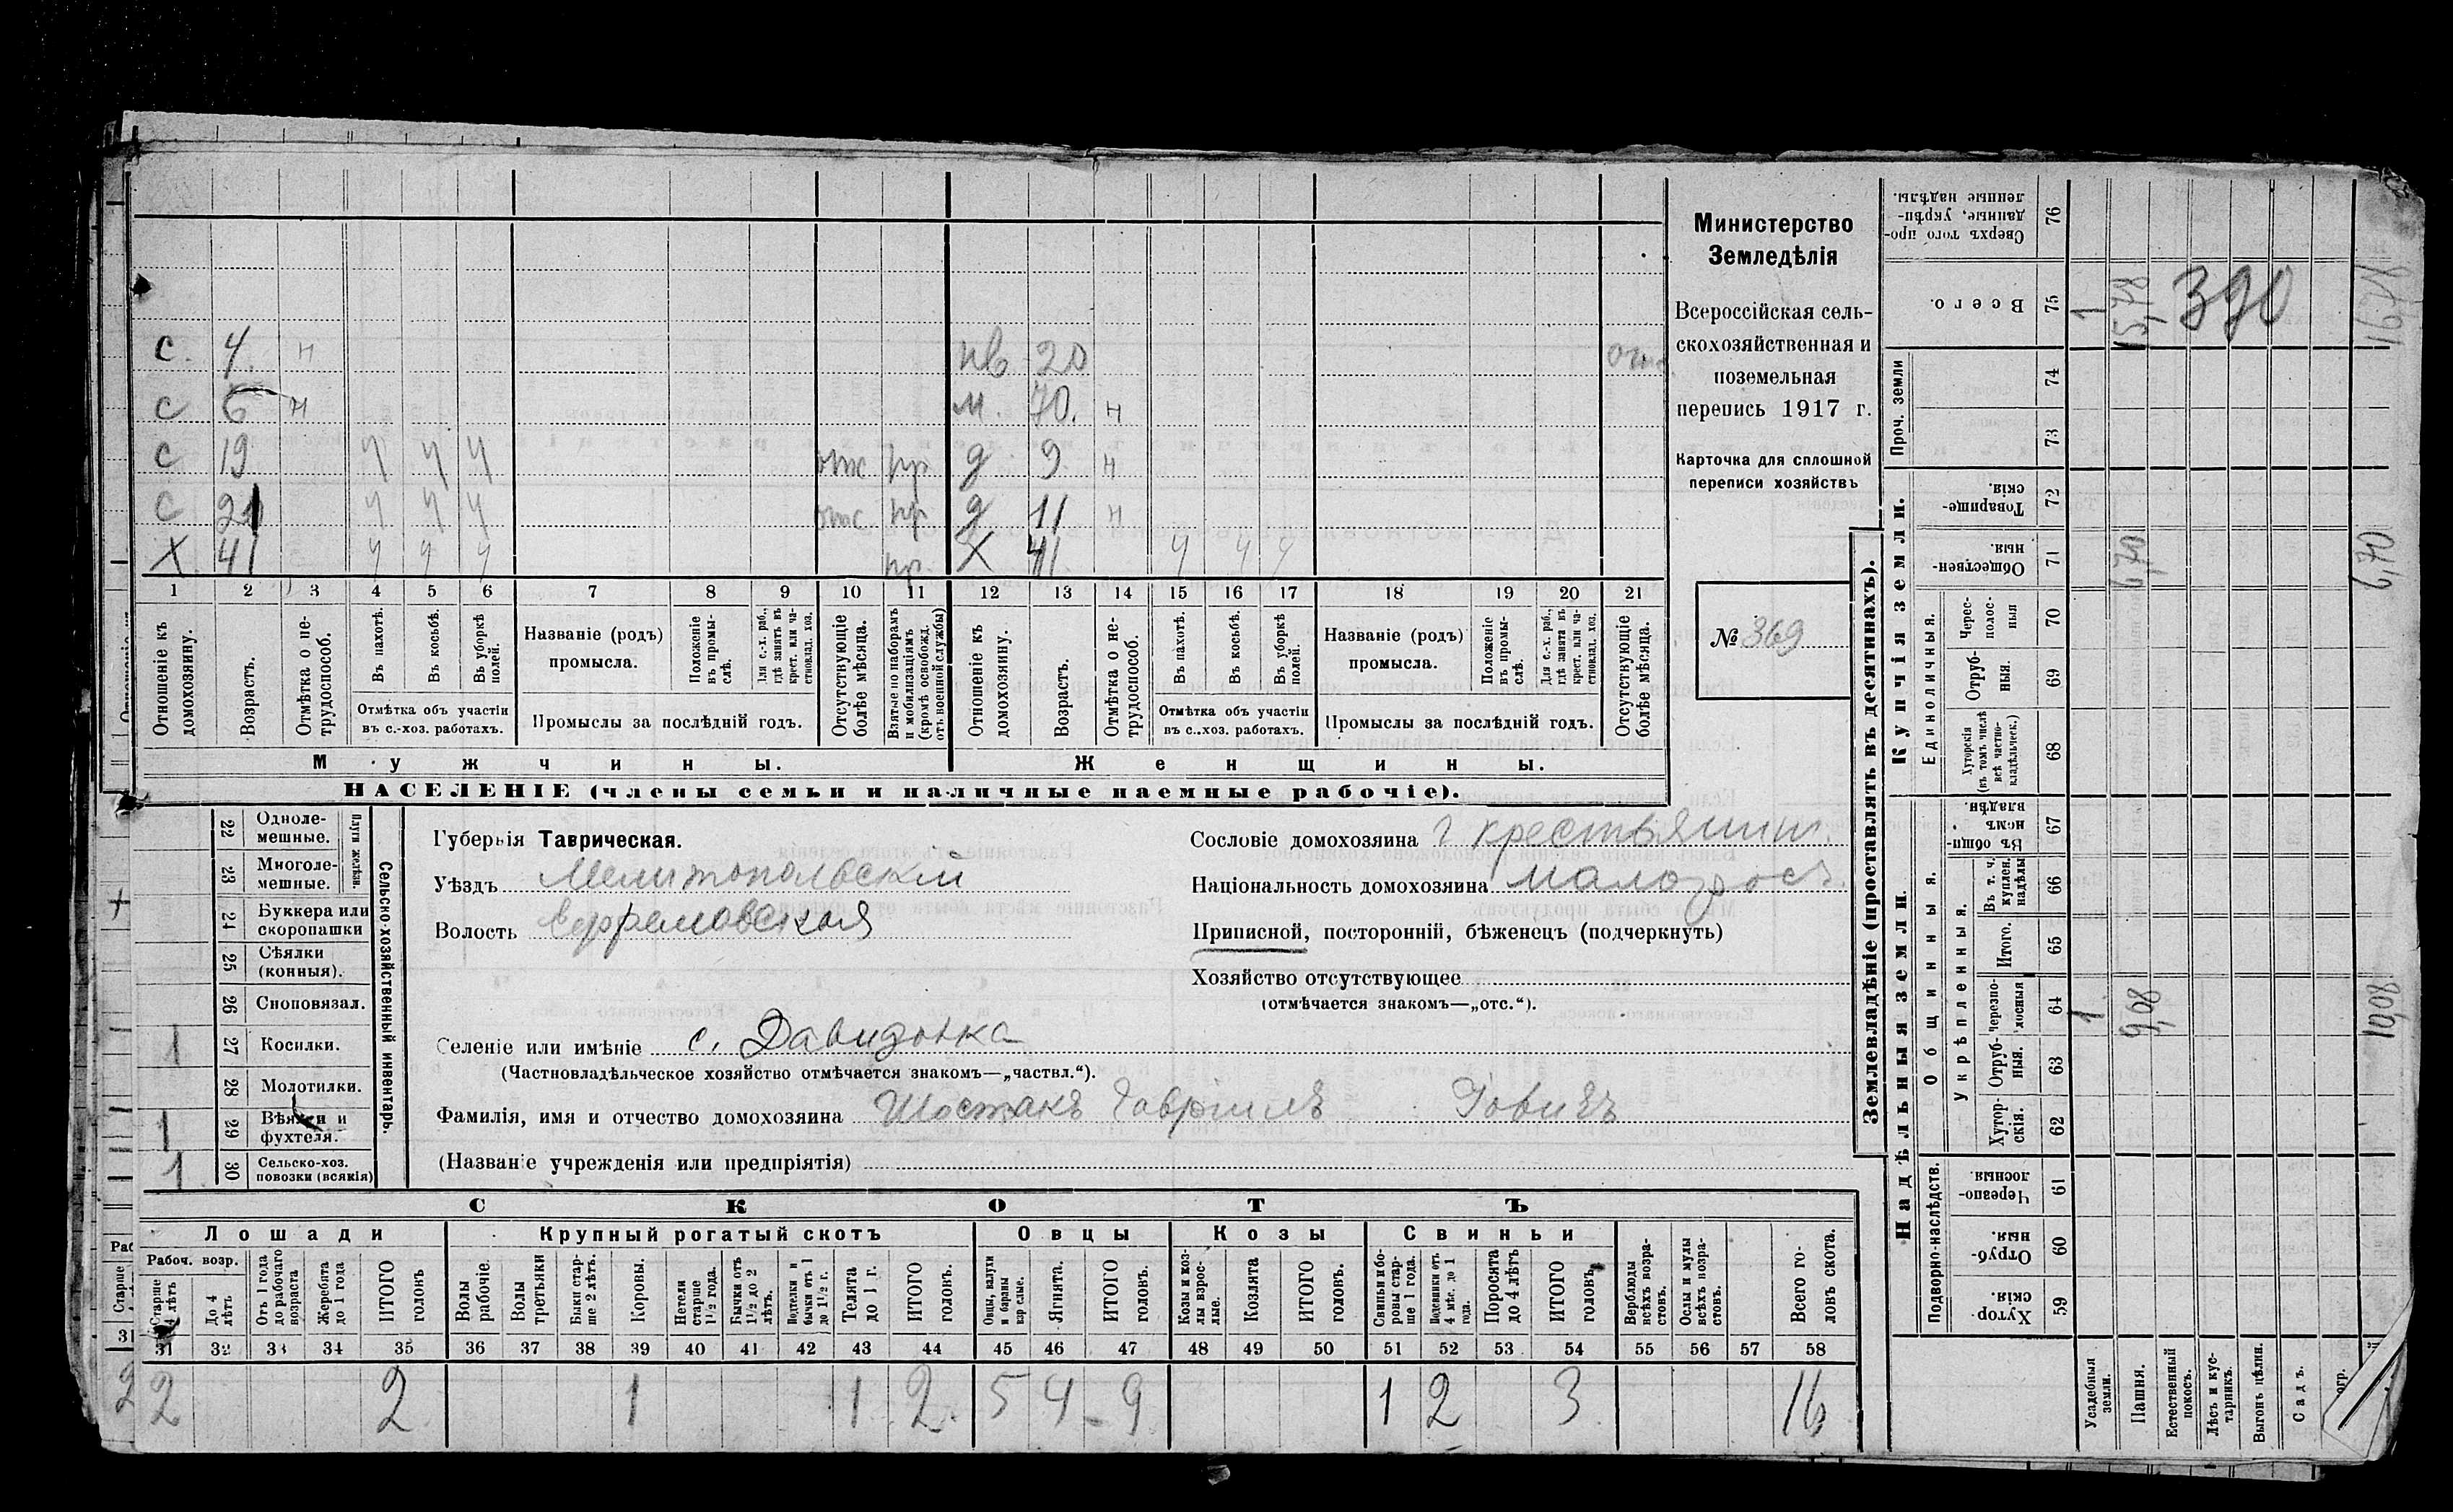 с. 4 н нв 20
с 6 н м. 70. н
с 19 ч ч ч отс пр д 9 н
с 21 ч ч ч отс пр д 11 н
Х 41 ч ч ч пр. Х 41 ч ч ч
1 2 3 4 5 6 7 8 9 10 11 12 13 14 15 16 17 18 19 20 21
Отношеніе къ домохозяину.
Возрастъ.
Отмѣтка о нетрудоспособ.
Въ пахотѣ.
Въ косьбѣ.
Въ уборкѣ полей.
Отмѣтка объ участіи
въ с.-хоз. работахъ.
Названіе (родъ)
промысла.
Положеніе въ промыслѣ.
Для с.-х. раб., гдѣ занятъ въ крест. или частновлад. хоз.
Промыслы за послѣдній годъ.
Отсутствующіе болѣе мѣсяца.
Взятые по наборамъ и мобилизаціямъ (кромѣ освобожд. отъ военной службы)
Отношеніе къ домохозяину.
Возрастъ.
Отмѣтка о нетрудоспособ.
Въ пахотѣ.
Въ косьбѣ.
Въ уборкѣ полей.
Отмѣтка объ участіи
въ с.-хоз. работахъ.
Названіе (родъ)
промысла.
Положеніе въ промыслѣ.
Для с.-х. раб., гдѣ занята въ крест. или частновлад. хоз.
Промыслы за послѣдній годъ.
Отсутствующіе болѣе мѣсяца.
Мужчины. Женщины.
НАСЕЛЕНІЕ (члены семьи и наличные наемные рабочіе).
Министерство
Земледѣлія
Всероссійская сель-
скохозяйственная и
поземельная
перепись 1917 г.
Карточка для сплошной
переписи хозяйствъ
№ 369
22 Одноле-
мешные.
23 Многоле-
мешные.
24 Буккера или
скоропашки
25 Сѣялки
(конныя).
26 Сноповязал.
1 27 Косилки.
28 Молотилки.
1 29 Вѣялки и
фухтеля.
1 30 Сельско-хоз.
повозки (всякія)
Сельско-хозяйственный инвентарь.
Губернія Таврическая.
Уѣздъ Мелитопольскій
Волость Ефремовская
Сословіе домохозяина крестьянин.
Національность домохозяина малорос.
Приписной, посторонній, бѣженецъ (подчеркнуть)
Хозяйство отсутствующее
(отмѣчается знакомъ—„отс.“).
Селеніе или имѣніе с. Давидовка
(Частновладѣльческое хозяйство отмѣчается знакомъ—„частвл.“).
Фамилія, имя и отчество домохозяина Шостакъ Гавріилъ
(Названіе учрежденія или предпріятія)
СКОТЪ
Лошади Крупный рогатый скотъ Овцы Козы Свиньи
Рабоч. возр.
Старше 4 лѣтъ
До 4 лѣтъ
Отъ 1 года до рабочаго возраста
Жеребята до 1 года
ИТОГО головъ
Волы рабочіе.
Волы третьяки
Быки старше 2 лѣтъ.
Коровы.
Нетели старше 1½ года.
Бычки отъ 1½ до 2 лѣтъ.
Подтелки и бычки отъ 1 до 1½ г.
Телята до 1 г.
ИТОГО головъ.
Овцы, валухи и бараны взрослые.
Ягнята.
ИТОГО головъ.
Козы и козлы взрослые.
Козлята
ИТОГО головъ.
Свиньи боровы старше 1 года.
Подсвинки отъ 4 мѣс. до 1 года.
Поросята до 4 лѣтъ
ИТОГО головъ.
Верблюды всѣхъ возрастовъ.
Ослы и мулы всѣхъ возрастовъ.
Всего головъ скота.
31 32 33 34 35 36 37 38 39 40 41 42 43 44 45 46 47 48 49 50 51 52 53 54 55 56 57 58
2 2 1 1 2 5 4 9 1 2 3 16
Землевладѣніе (проставлять въ десятинахъ).
Надѣльныя земли. Купчія земли. Проч. земли
Подворно-наслѣдств. Общинныя. Укрѣпленныя. Единоличныя.
59 Хуторскія.
60 Отрубныя.
61 Черезполосныя
62 Хуторскія.
63 Отрубныя.
64 Черезполосныя 1 9,08 10,08
65 Итого.
66 Въ т. ч. куплен. надѣлы
67 Въ общинномъ владѣн.
68 Хуторскія (въ томъ числѣ всѣ частновладѣльческ.)
69 Отрубныя.
70 Чересполосныя
71 Общественныя. 6,70 6,70
72 Товарищескія.
73
74
75 Всего. 1 15,78 390 16,78
76 Сверхъ того проданные, укрѣпленные надѣлы.
Усадебныя земли.
Пашня.
Естественный покосъ.
Лѣсъ и кустарникъ.
Выгонъ цѣлин.
Садъ.